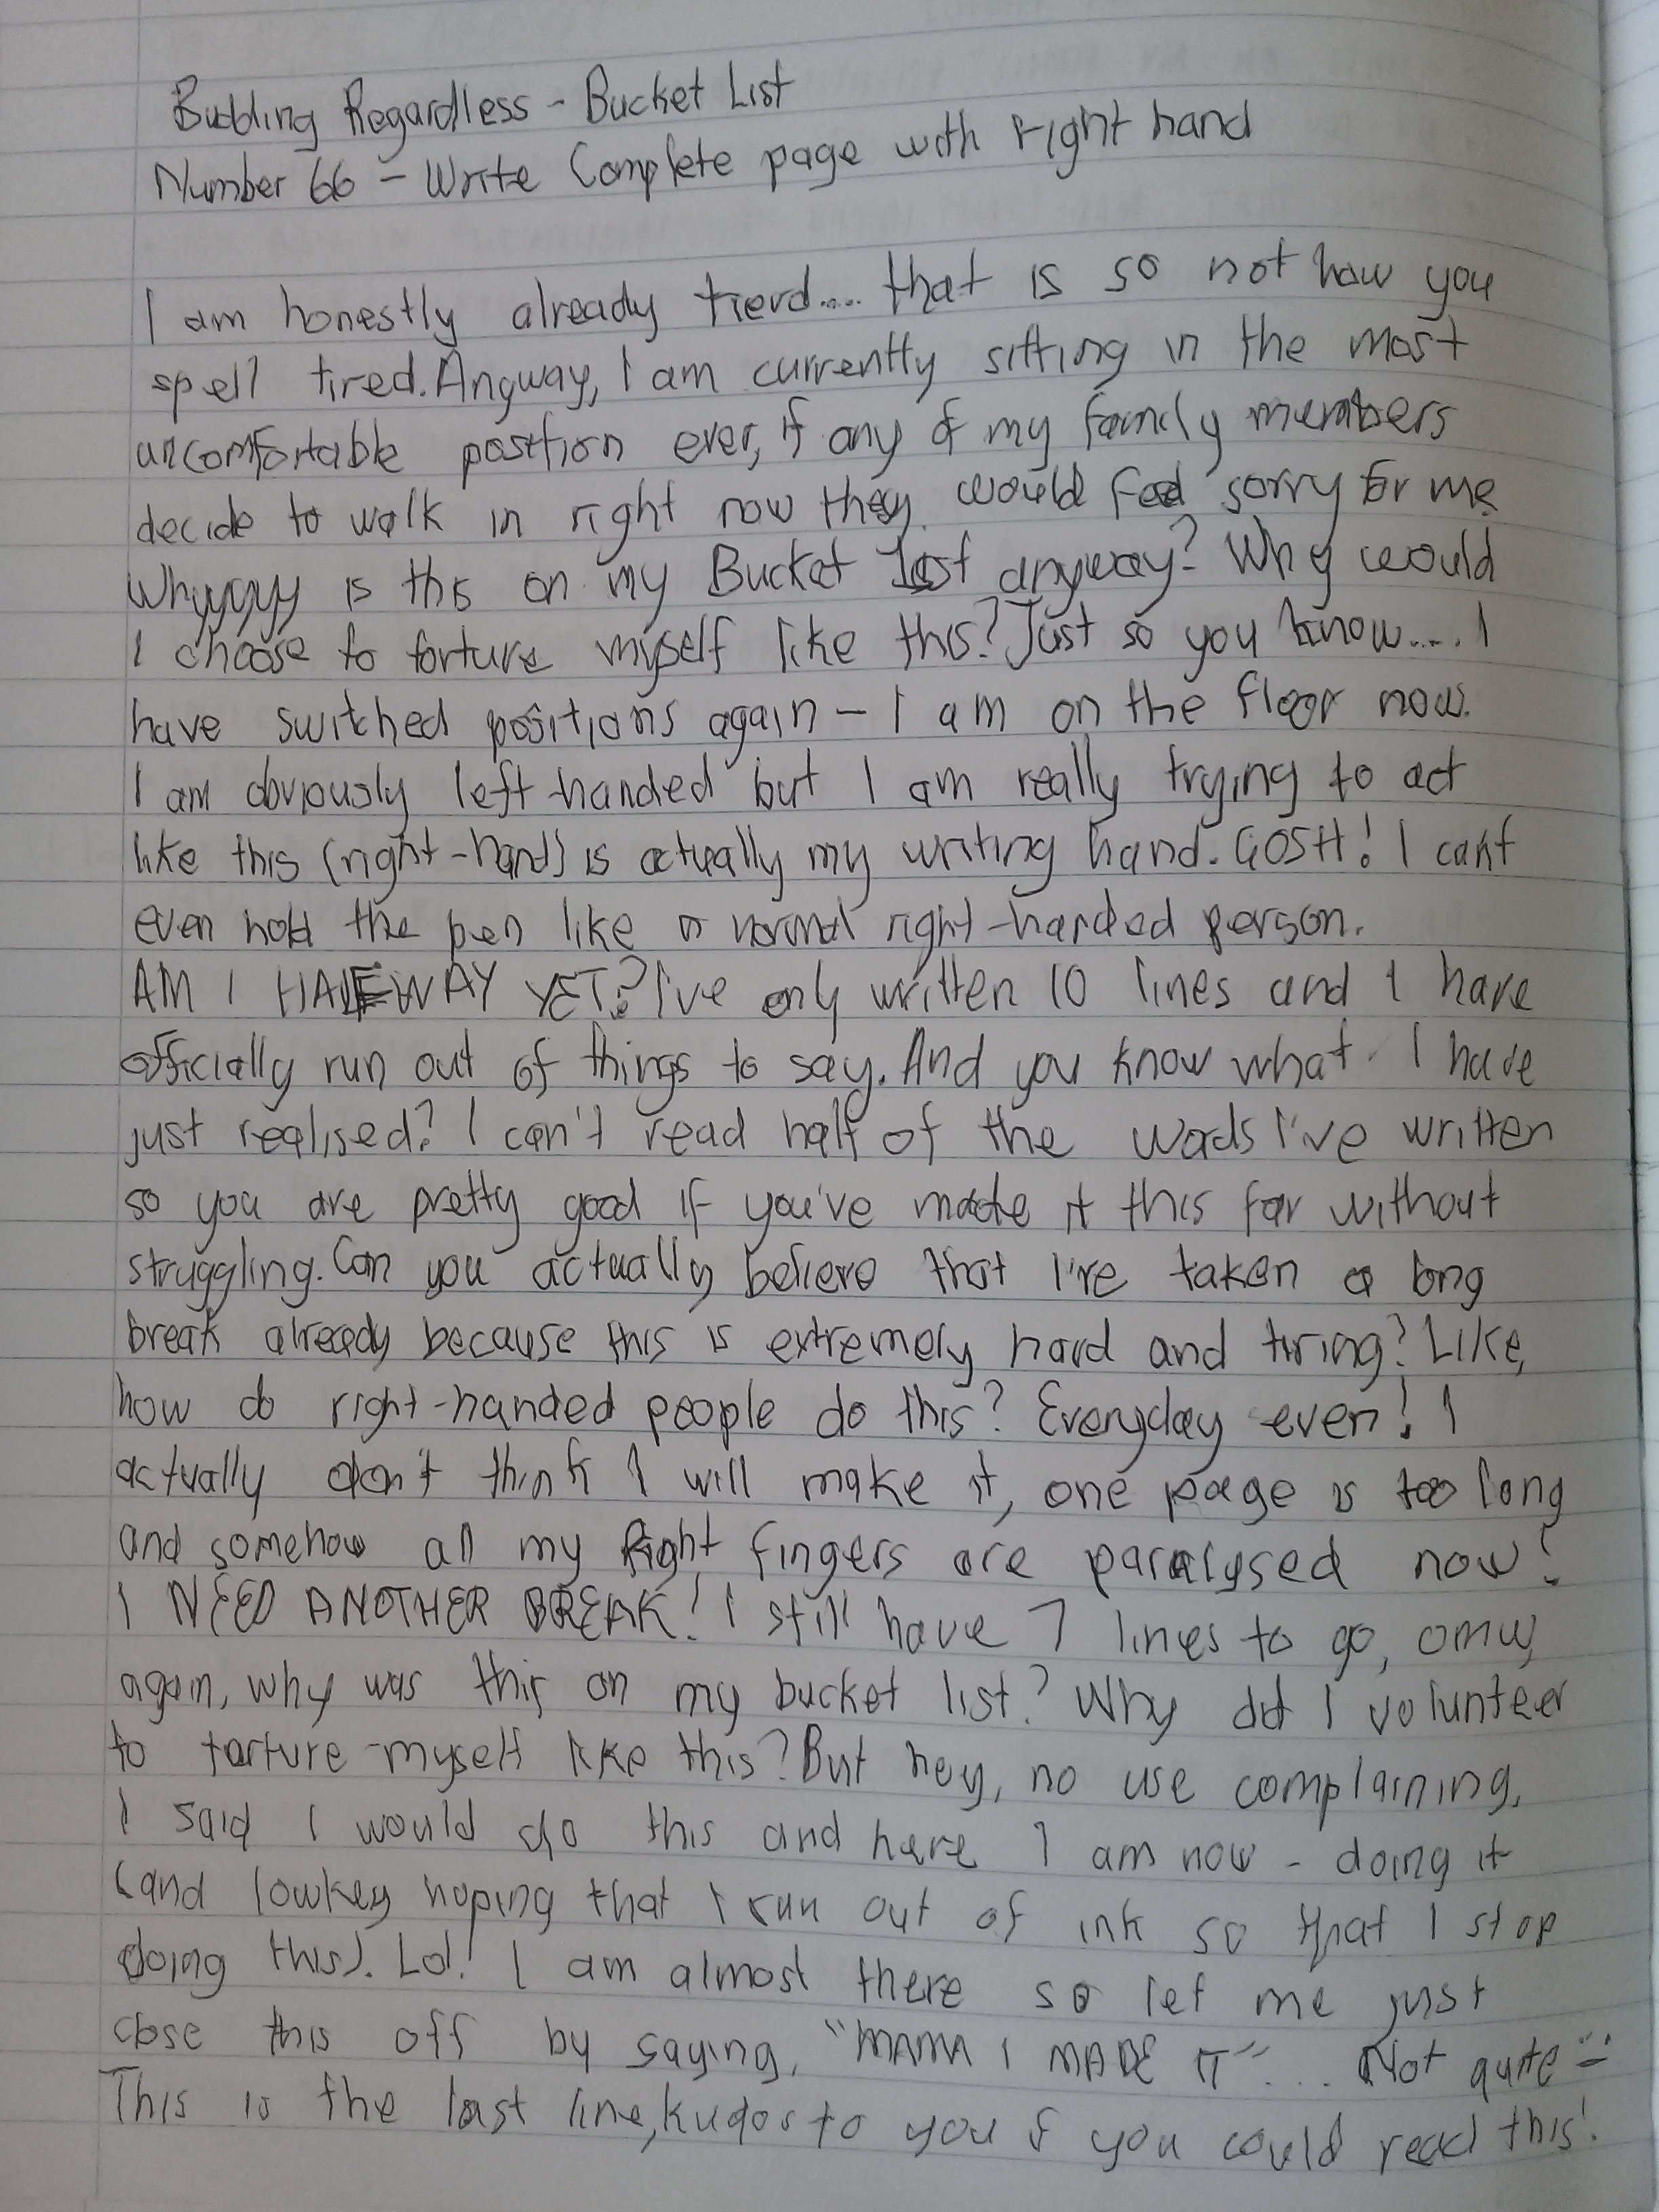 Budding Regardless - Bucket List
Number 66 - Write Complete page with right hand
I am honestly already tierd.... that is so not how you
spell tired. Anyway, I am currently sitting in the most
uncomfortable position ever, if any of my family members
decide to walk in right now they would feel sorry for me.
Whyyyyy is this on my Bucket List anyway? Why would
I choose to torture myself like this? Just so you know.... I
have switched positions again - I am on the floor now.
I am obviously left-handed but I am really trying to act
like this (right-hand) is actually my writing hand. GOSH! I can't
even hold the pen like a normal right-handed person.
AM I HALFWAY YET? I've only written 10 lines and I have
officially run out of things to say. And you know what I have
just realised? I can't read half of the wods I've written
so you are pretty good if you've made it this far without
struggling. Can you actually believe that I've taken a long
break already because this is extremely hard and tiring? Like,
how do right-handed people do this? Everyday even! I
actually don't think I will make it, one page is too long
and somehow all my Right fingers are paralysed now!
I NEED ANOTHER BREAK! I still have 7 lines to go, omw,
again, why was this on my bucket list? Why did I volunteer
to torture myself like this? But hey, no use complaining,
I said I would do this and here I am now - doing it
(and lowkey hoping that I run out of ink so that I stop
doing this). Lol! I am almost there so let me just
close this off by saying, "MAMA I MADE IT"... Not quite
This is the last line, kudos to you if you could read this!